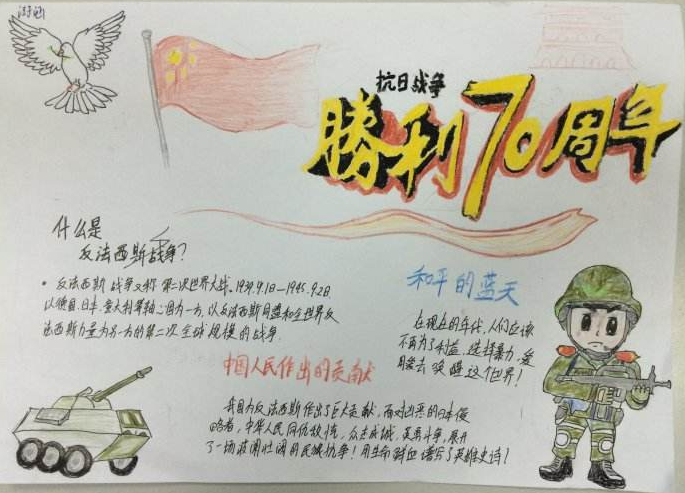 抗日战争
勝利70周年
什么是
反法西斯战争?
• 反法西斯战争又称第二次世界大战。1939.9.1日—1945.9.2日
以德国、日本、意大利等轴心国为一方,以反法西斯同盟和全世界反
法西斯力量为另一方的第二次全球规模的战争.
和平的蓝天
在现在的年代,人们应该
不再为了利益,选择暴力,爱
去唤醒这个世界!
中国人民作出的贡献
我国为反法西斯作出了巨大贡献,面对凶恶的日本侵
略者,中华人民同仇敌忾,众志成城,英勇斗争,展开
了一场波澜壮阔的民族抗争!用生命鲜血谱写了英雄史诗!